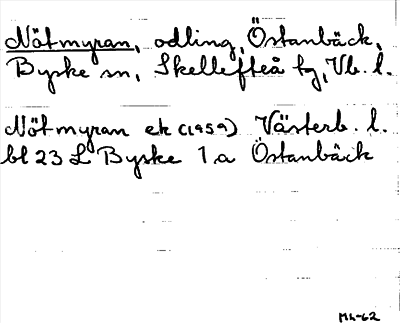 Nötmyran, odling, Östanbäck,
Byske sn, Skellefteå tg, Vb. l.
Nötmyran ek (1959) Västerb. l.
bl 23 L Byske 1 a Östanbäck
Mh-62